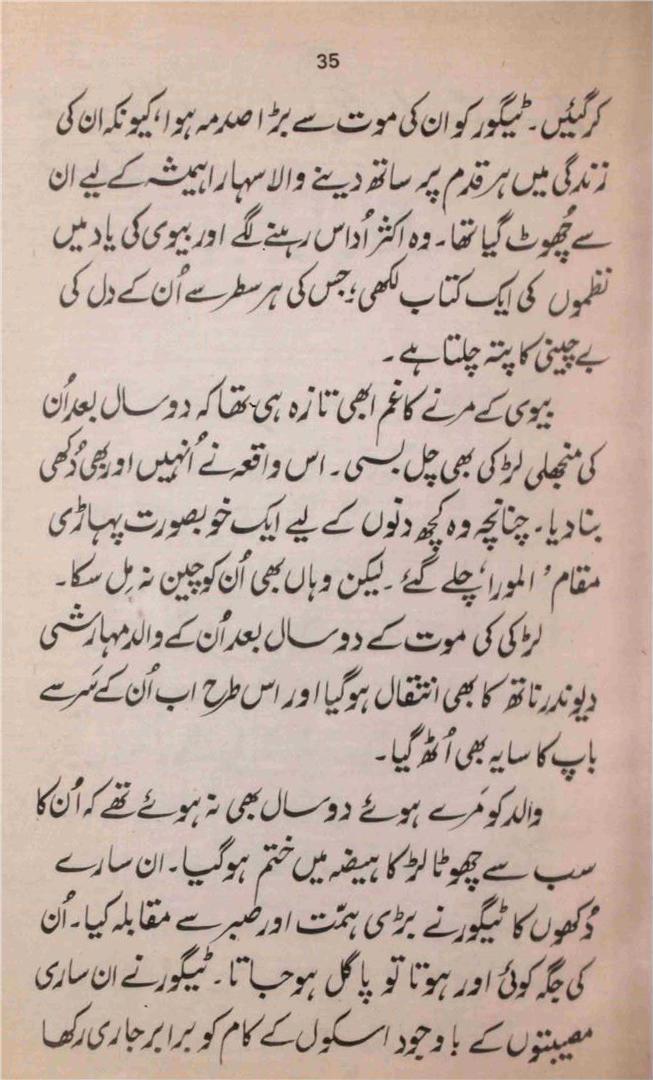 35
کرگئیں۔ ٹیگور کو ان کی موت سے بڑا صدمہ ہوا، کیونکہ ان کی
زندگی میں ہر قدم پر ساتھ دینے والا سہارا ہمیشہ کے لیے ان
سے چُھوٹ گیا تھا۔ وہ اکثر اُداس رہنے لگے اور بیوی کی یاد میں
نظموں کی ایک کتاب لکھی؛ جس کی ہر سطر سے اُن کے دل کی
بے چینی کا پتہ چلتا ہے۔
بیوی کے مرنے کا غم ابھی تازہ ہی تھا کہ دو سال بعد اُن
کی منجھلی لڑکی بھی چل بسی۔ اس واقعہ نے اُنہیں اور بھی دُکھی
بنا دیا۔ چنانچہ وہ کچھ دنوں کے لیے ایک خوبصورت پہاڑی
مقام ’المورا‘ چلے گئے۔ لیکن وہاں بھی اُن کو چین نہ مِل سکا۔
لڑکی کی موت کے دو سال بعد اُن کے والد مہارشی
دیوندر ناتھ کا بھی انتقال ہوگیا اور اس طرح اب اُن کے سَر سے
باپ کا سایہ بھی اُٹھ گیا۔
والد کو مَرے ہوئے دو سال بھی نہ ہوئے تھے کہ اُن کا
سب سے چھوٹا لڑکا ہیضہ میں ختم ہوگیا۔ ان سارے
دُکھوں کا ٹیگور نے بڑی ہمّت اور صبر سے مقابلہ کیا۔ اُن
کی جگہ کوئی اور ہوتا تو پاگل ہوجاتا۔ ٹیگور نے ان ساری
مصیبتوں کے باوجود اسکول کے کام کو برابر جاری رکھا